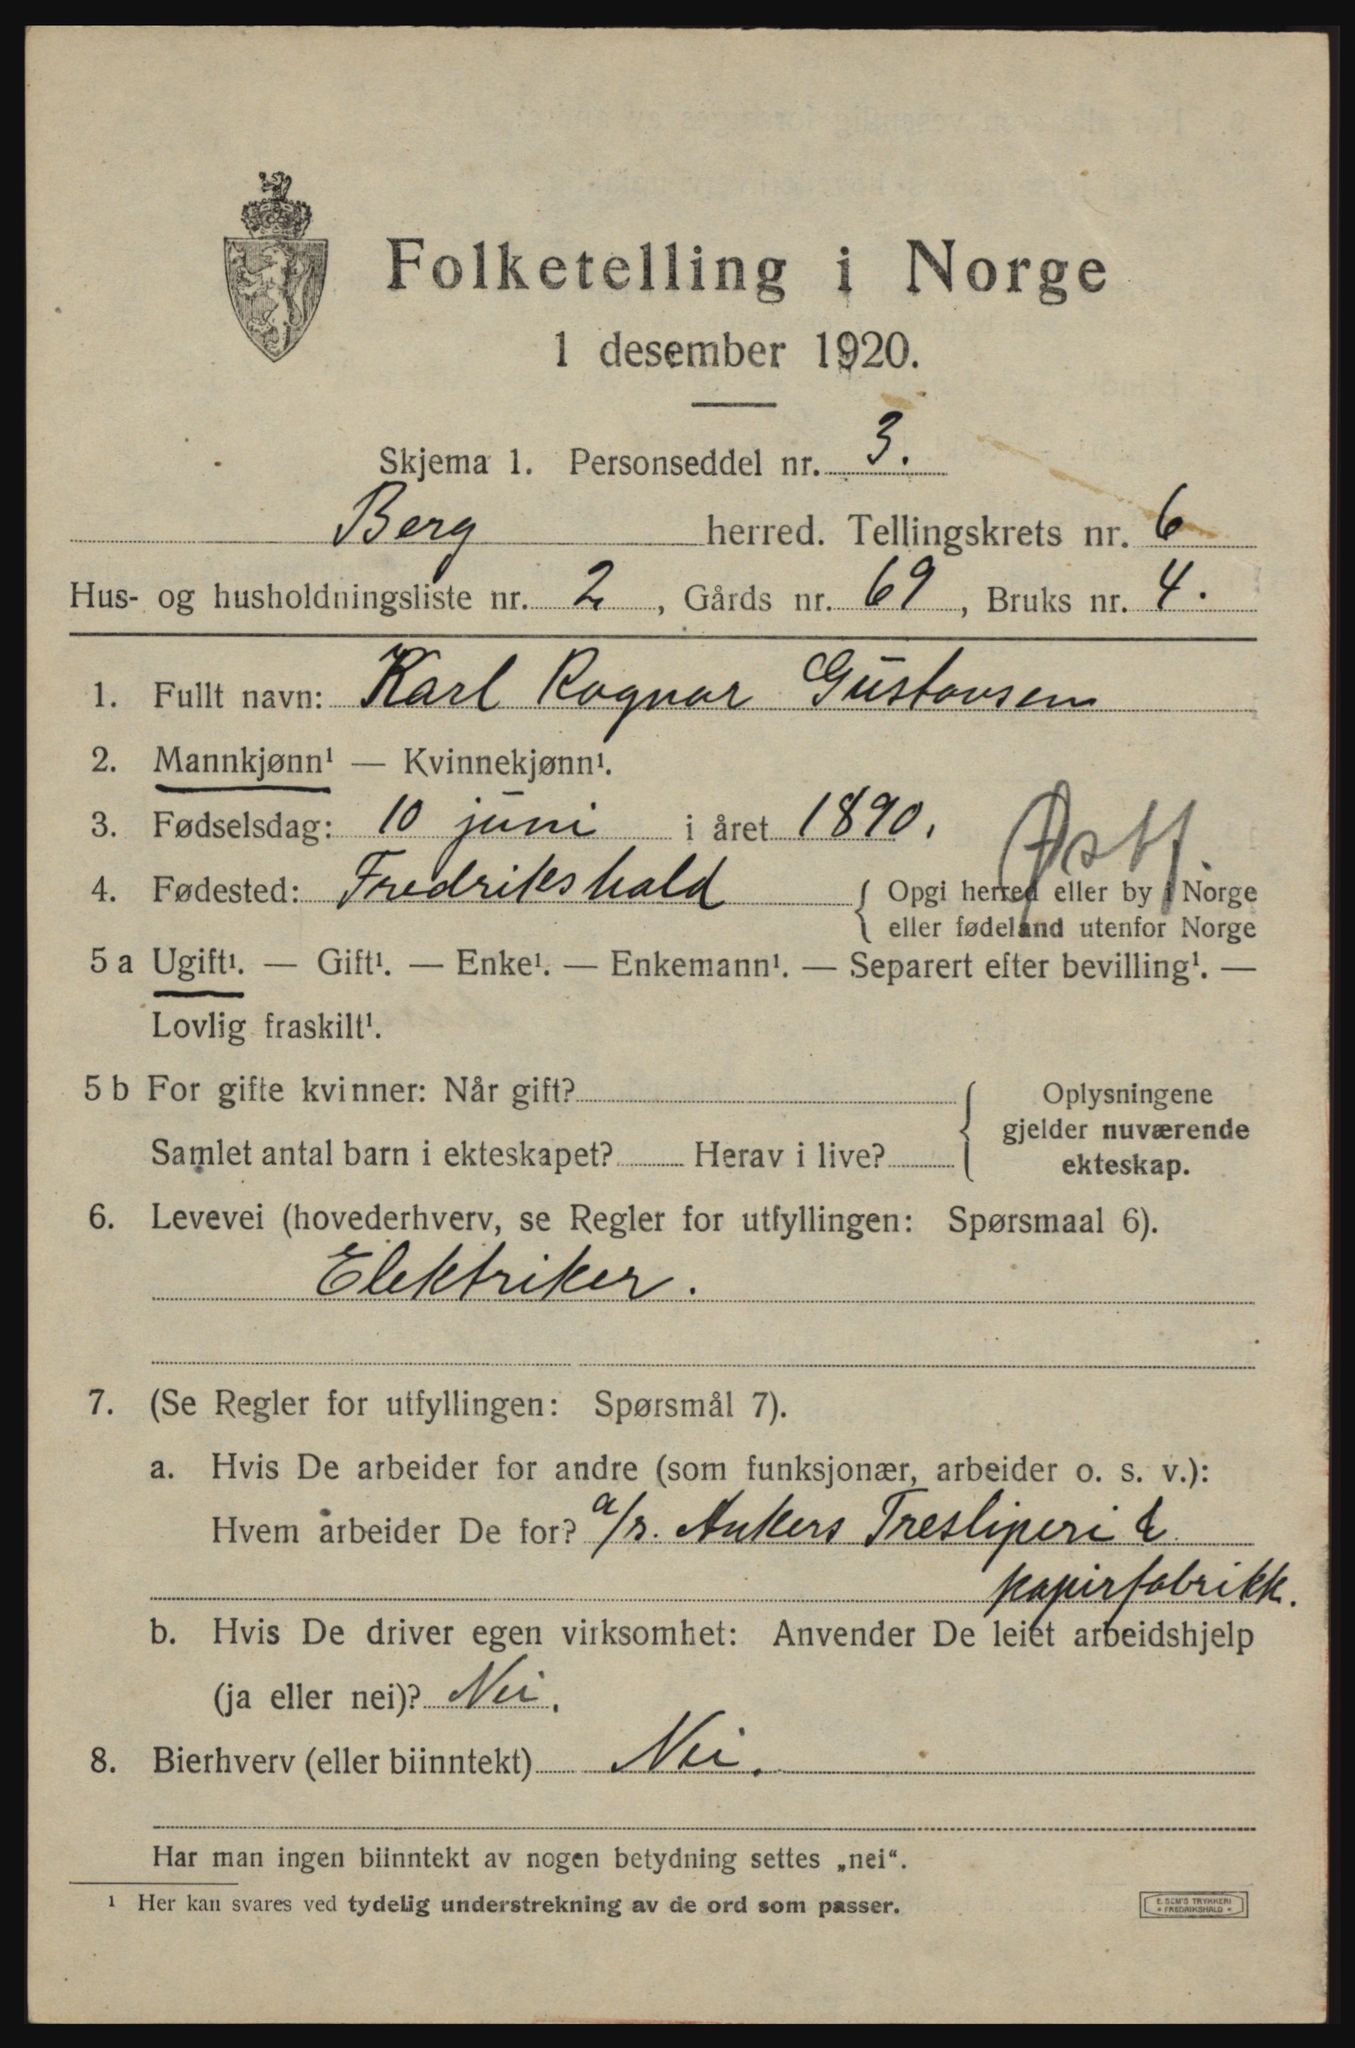 Folketelling i Norge
1 desember 1920.
Skjema 1. Personseddel nr. 3.
Berg herred. Tellingskrets nr. 6
Hus- og husholdningsliste nr. 2, Gårds nr. 69, Bruks nr. 4.
1. Fullt navn: Karl Ragnar Gustavsen
2. Mannkjønn¹ — Kvinnekjønn¹.
3. Fødselsdag: 10 juni i året 1890.
Østf.
4. Fødested: Fredrikshald { Opgi herred eller by i Norge
eller fødeland utenfor Norge
5 a Ugift¹. — Gift¹. — Enke¹. — Enkemann¹. — Separert efter bevilling¹. —
Lovlig fraskilt¹.
5 b For gifte kvinner: Når gift?
Samlet antal barn i ekteskapet? Herav i live?
Oplysningene
gjelder nuværende
ekteskap.
6. Levevei (hovederhverv, se Regler for utfyllingen: Spørsmaal 6).
Elektriker.
7. (Se Regler for utfyllingen: Spørsmål 7).
a. Hvis De arbeider for andre (som funksjonær, arbeider o. s. v.):
Hvem arbeider De for? a/s. Ankers Tresliperi &
papirfabrikk.
b. Hvis De driver egen virksomhet: Anvender De leiet arbeidshjelp
(ja eller nei)? Nei.
8. Bierhverv (eller biinntekt) Nei.
Har man ingen biinntekt av nogen betydning settes „nei“.
¹ Her kan svares ved tydelig understrekning av de ord som passer.
E. SEM'S TRYKKERI
• FREDRIKSHALD •